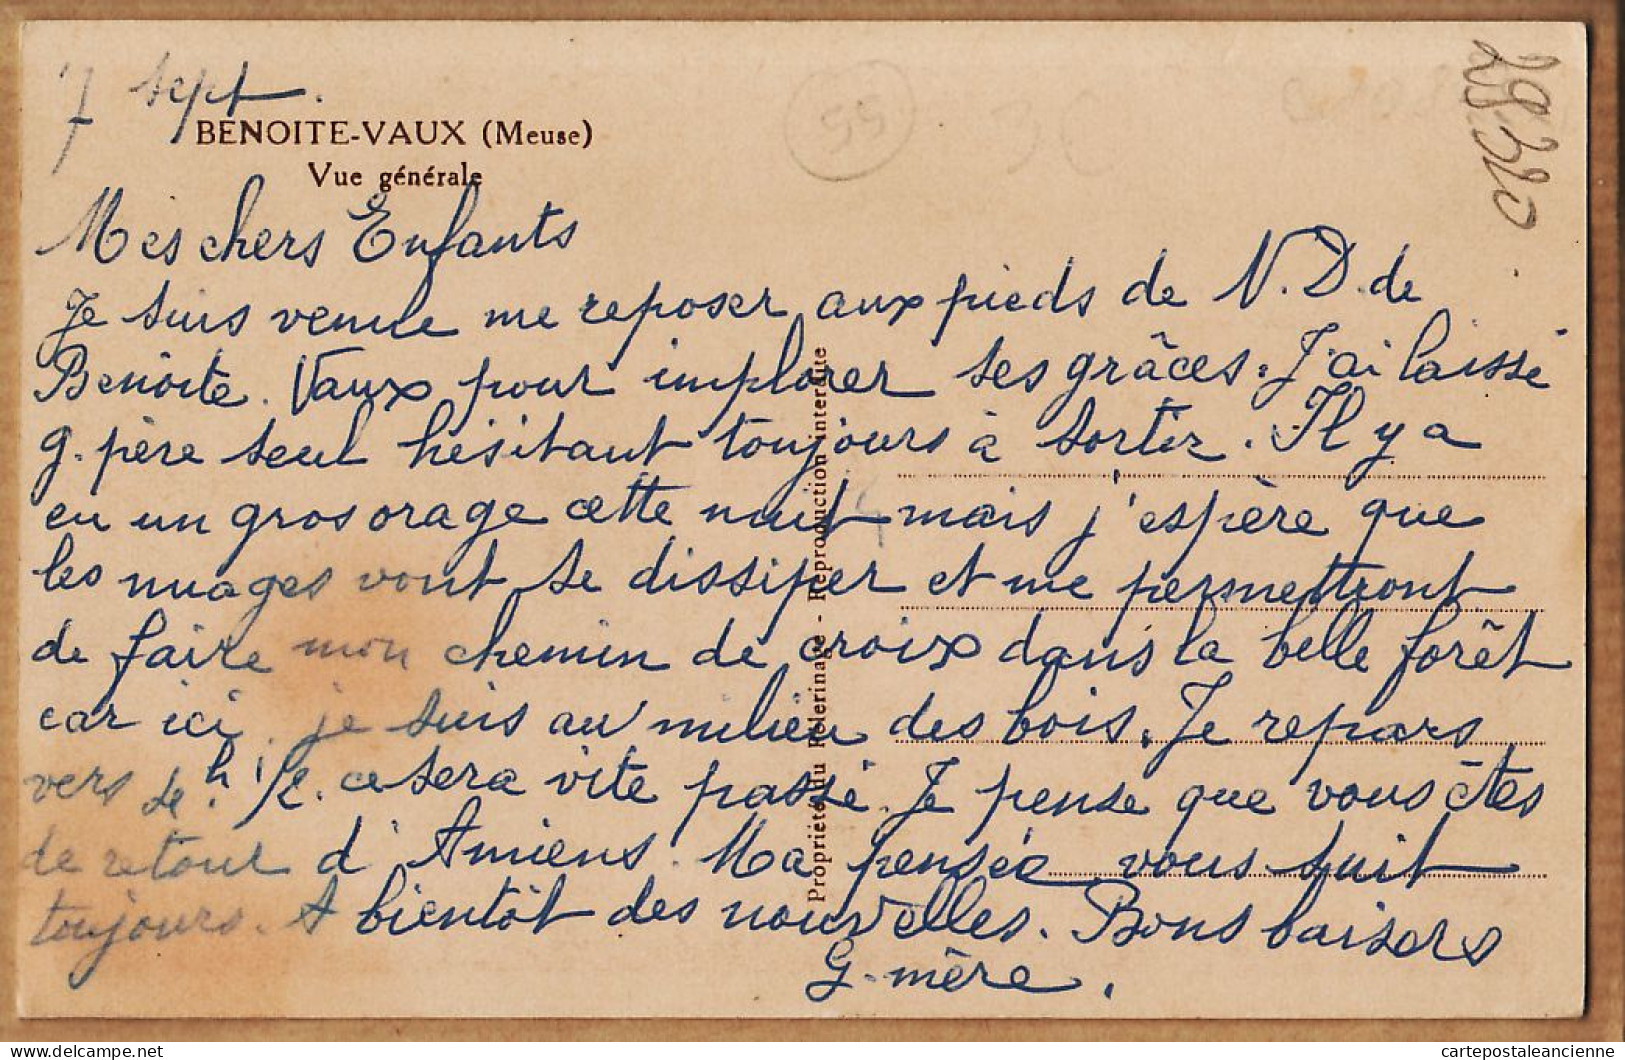 7 sept.
BENOITE-VAUX (Meuse)
Vue générale
55
28.320
Mes chers Enfants
Je suis venue me reposer aux pieds de N.D. de
Benoite. Vaux pour implorer ses grâces. J'ai laissé
g. père seul hésitant toujours à sortir. Il y a
eu un gros orage cette nuit mais j'espère que
les nuages vont se dissiper et me permettront
de faire mon chemin de croix dans la belle forêt
car ici je suis au milieu des bois. Je repars
vers h 1/2. ce sera vite passé. Je pense que vous êtes
de retour d'Amiens. Ma pensée vous suit
toujours. A bientôt des nouvelles. Bons baisers
G-mère.
Propriété du Pèlerinage - Reproduction interdite
cartepostaleancienne
delcampe.net